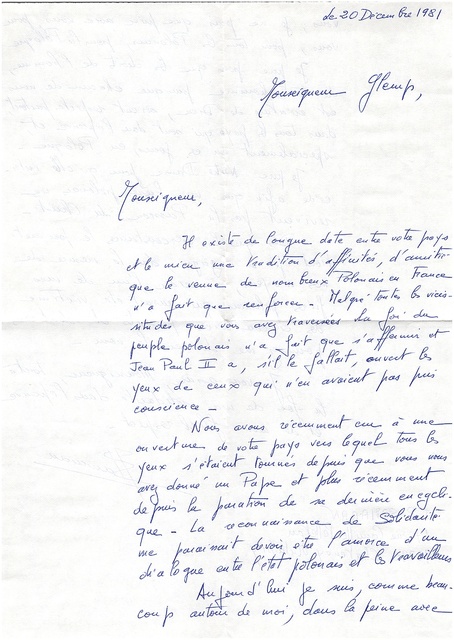 le 20 Décembre 1981
Monseigneur Glemp,
Monseigneur,
Il existe de longue date entre votre pays
et le mien une tradition d'affinités, d'amitié
que la venue de nombreux Polonais en France
n'a fait que renforcer - Malgré toutes les vicis-
situdes que vous avez traversées la foi du
peuple polonais n'a fait que s'affermir et
Jean Paul II a, s'il le fallait, ouvert les
yeux de ceux qui n'en avaient pas pris
conscience -
Nous avons récemment cru à une
ouverture de votre pays vers lequel tous les
yeux s'étaient tournés depuis que vous nous
avez donné un Pape et plus récemment
depuis la parution de sa dernière encycli-
que - La reconnaissance de Solidarité
me paraissait devoir être l'amorce d'un
dialogue entre l'état polonais et les travailleurs
Aujourd'hui je suis, comme beau-
coup autour de moi, dans la peine avec